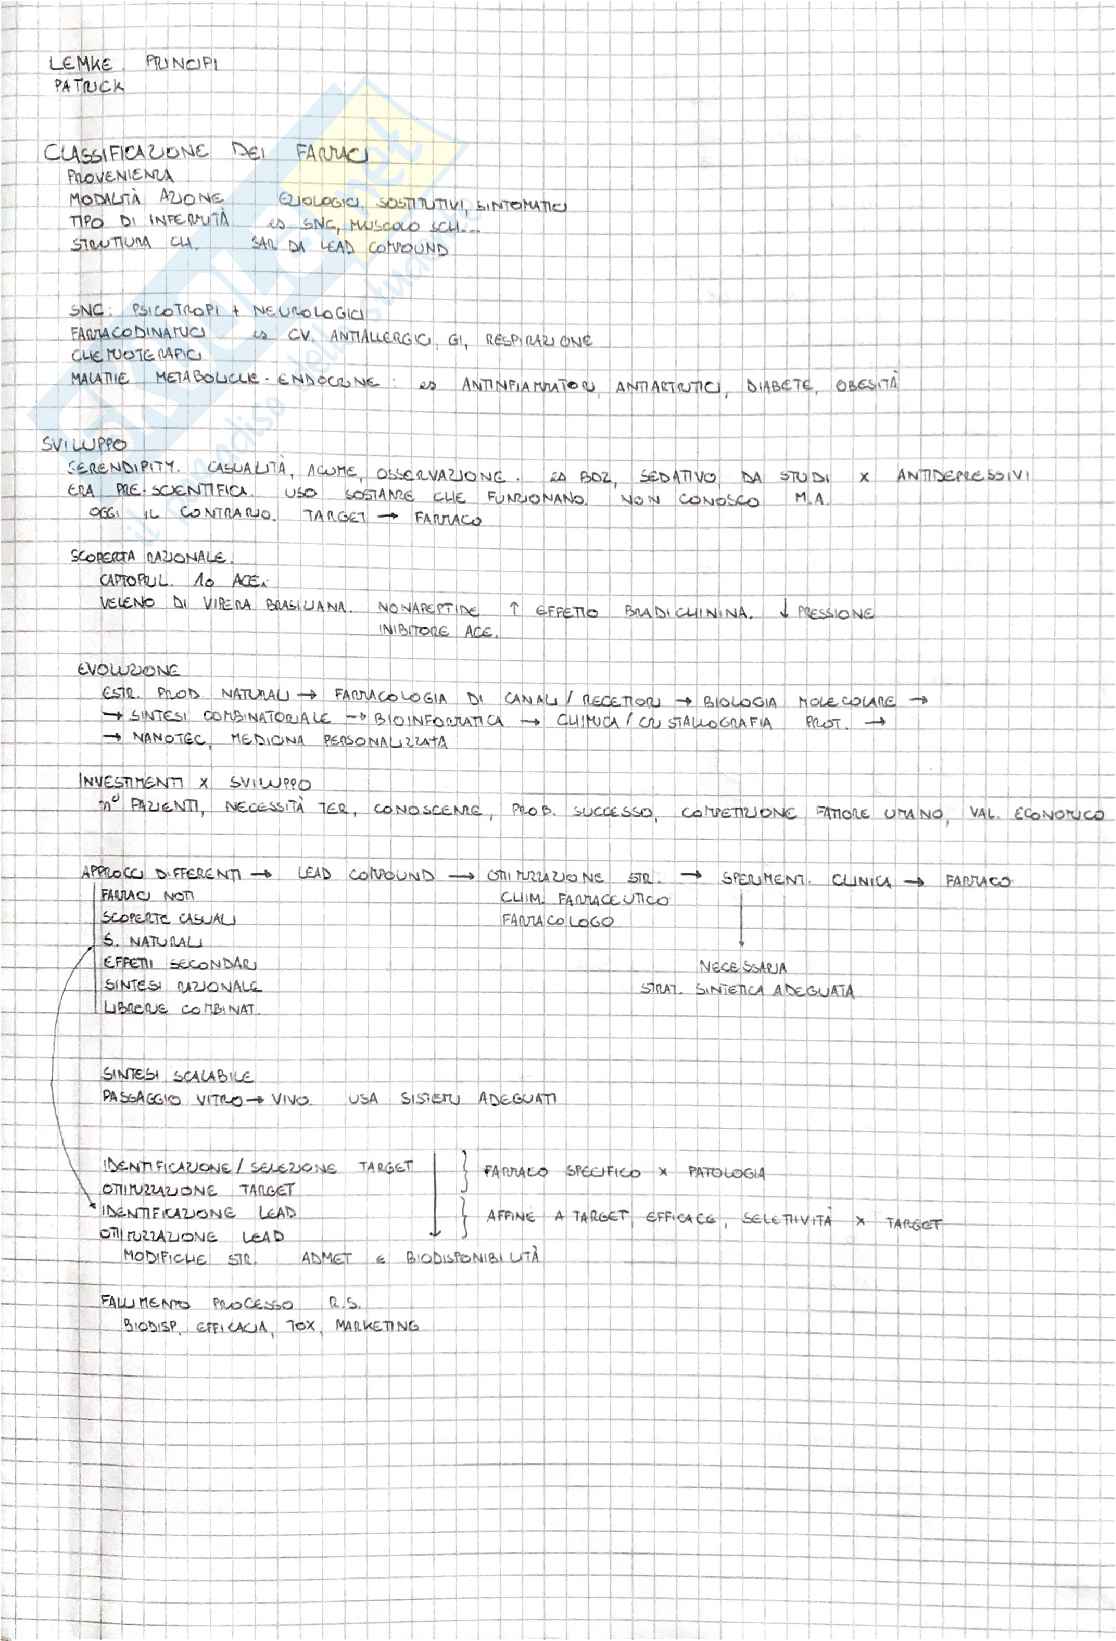 LEMKE PRINCIPI
PATRICK
CLASSIFICAZIONE DEI FARMACI
PROVENIENZA
MODALITÀ AZIONE EZIOLOGICI, SOSTITUTIVI, SINTOMATICI
TIPO DI INFERMITÀ es SNC, MUSCOLO SCH...
STRUTTURA CH. SAR DA LEAD COMPOUND
SNC: PSICOTROPI + NEUROLOGICI
FARMACODINAMICI es CV, ANTIALLERGICI, GI, RESPIRAZIONE
CHEMIOTERAPICI
MALATTIE METABOLICHE - ENDOCRINE : es ANTINFIAMMATORI, ANTIARTRITICI, DIABETE, OBESITÀ
SVILUPPO
SERENDIPITY. CASUALITÀ, ACUME, OSSERVAZIONE. es BDZ, SEDATIVO DA STUDI x ANTIDEPRESSIVI
ERA PRE-SCIENTIFICA. USO SOSTANZE CHE FUNZIONANO. NON CONOSCO M.A.
OGGI IL CONTRARIO. TARGET → FARMACO
SCOPERTA RAZIONALE.
CAPTOPRIL. 1o ACEi
VELENO DI VIPERA BRASILIANA. NONAPEPTIDE ↑ EFFETTO BRADICHININA. ↓ PRESSIONE
INIBITORE ACE.
EVOLUZIONE
ESTR. PROD NATURALI → FARMACOLOGIA DI CANALI / RECETTORI → BIOLOGIA MOLECOLARE →
→ SINTESI COMBINATORIALE → BIOINFORMATICA → CHIMICA / CRISTALLOGRAFIA PROT. →
→ NANOTEC, MEDICINA PERSONALIZZATA
INVESTIMENTI x SVILUPPO
n° PAZIENTI, NECESSITÀ TER, CONOSCENZE, PROB. SUCCESSO, COMPETIZIONE FATTORE UMANO, VAL. ECONOMICO
APPROCCI DIFFERENTI → LEAD COMPOUND → OTTIMIZZAZIONE STR. → SPERIMENT. CLINICA → FARMACO
FARMACI NOTI CHIM. FARMACEUTICO
SCOPERTE CASUALI FARMACOLOGO
S. NATURALI
EFFETTI SECONDARI NECESSARIA
SINTESI RAZIONALE STRAT. SINTETICA ADEGUATA
LIBRERIE COMBINAT.
SINTESI SCALABILE
PASSAGGIO VITRO → VIVO. USA SISTEMI ADEGUATI
IDENTIFICAZIONE / SELEZIONE TARGET FARMACO SPECIFICO x PATOLOGIA
OTTIMIZZAZIONE TARGET
IDENTIFICAZIONE LEAD AFFINE A TARGET, EFFICACE, SELETTIVITÀ x TARGET
OTTIMIZZAZIONE LEAD
MODIFICHE STR. ADMET e BIODISPONIBILITÀ
FALLIMENTO PROCESSO R.S.
BIODISP, EFFICACIA, TOX, MARKETING